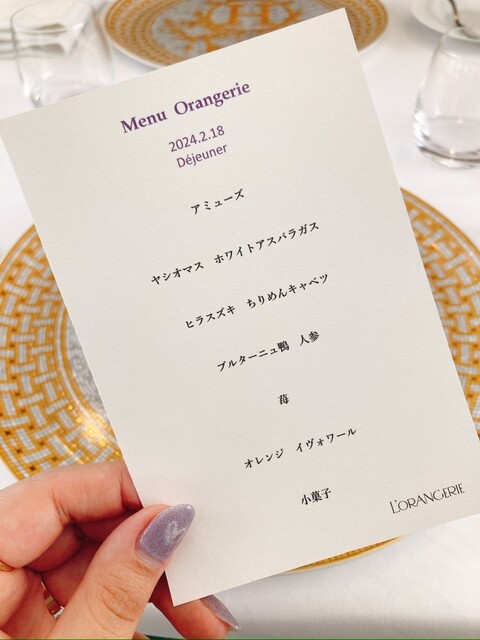 Menu Orangerie
2024.2.18
Déjeuner
アミューズ
ヤシオマス ホワイトアスパラガス
ヒラスズキ ちりめんキャベツ
ブルターニュ鴨 人参
苺
オレンジ イヴォワール
小菓子
L'ORANGERIE